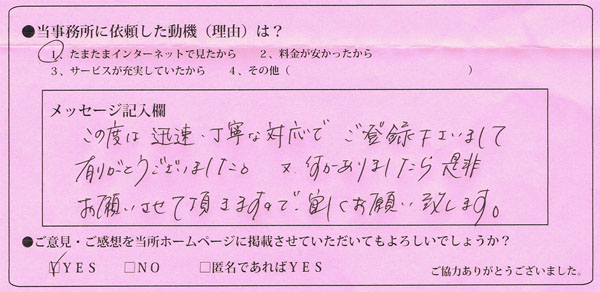 ●当事務所に依頼した動機（理由）は？
1、たまたまインターネットで見たから　2、料金が安かったから
3、サービスが充実していたから　4、その他（　　　　　　　　　　）
メッセージ記入欄
この度は 迅速・丁寧な対応で ご登録下さいまして
有りがとうございました。 又 何かありましたら 是非
お願いさせて頂きますので、宜しくお願い致します。
●ご意見・ご感想を当所ホームページに掲載させていただいてもよろしいでしょうか？
☑YES　□NO　□匿名であればYES
ご協力ありがとうございました。